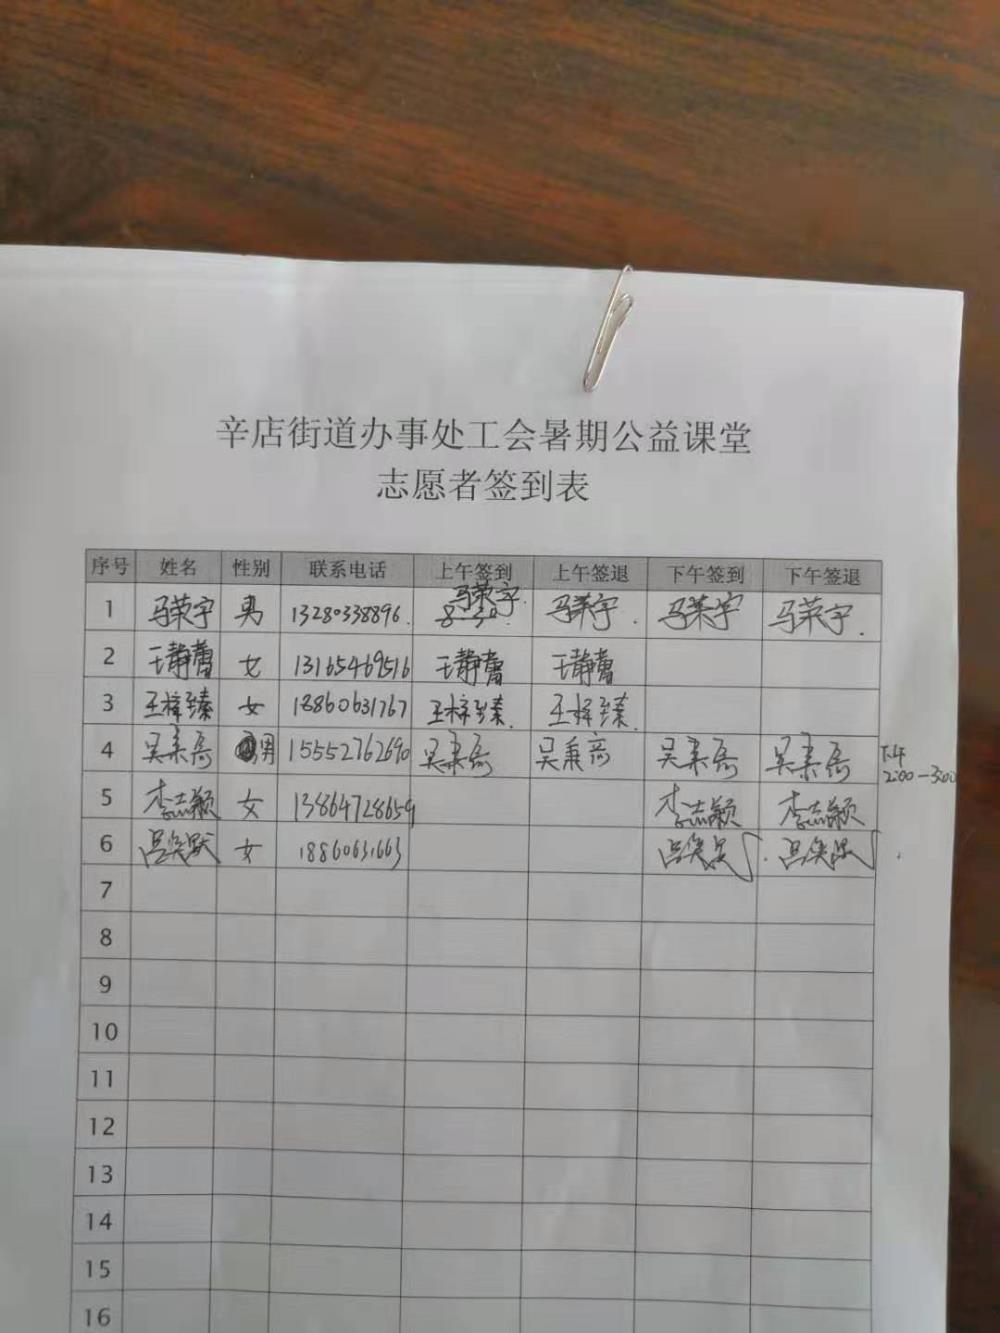 辛店街道办事处工会暑期公益课堂
志愿者签到表
序号 姓名 性别 联系电话 上午签到 上午签退 下午签到 下午签退
1 马荣宇 男 13280338896. 马荣宇. 8-30. 马荣宇. 马荣宇 马荣宇.
2 王静蕾 女 13165469516 王静蕾 王静蕾
3 王梓臻 女 18860631767 王梓臻. 王梓臻.
4 吴秉 男 15552762690 吴秉 吴秉 吴秉 吴秉 下午 2:00-3:00
5 李志颖 女 13864728659 李志颖 李志颖
6 吕 女 18860631663 吕 吕
7
8
9
10
11
12
13
14
15
16